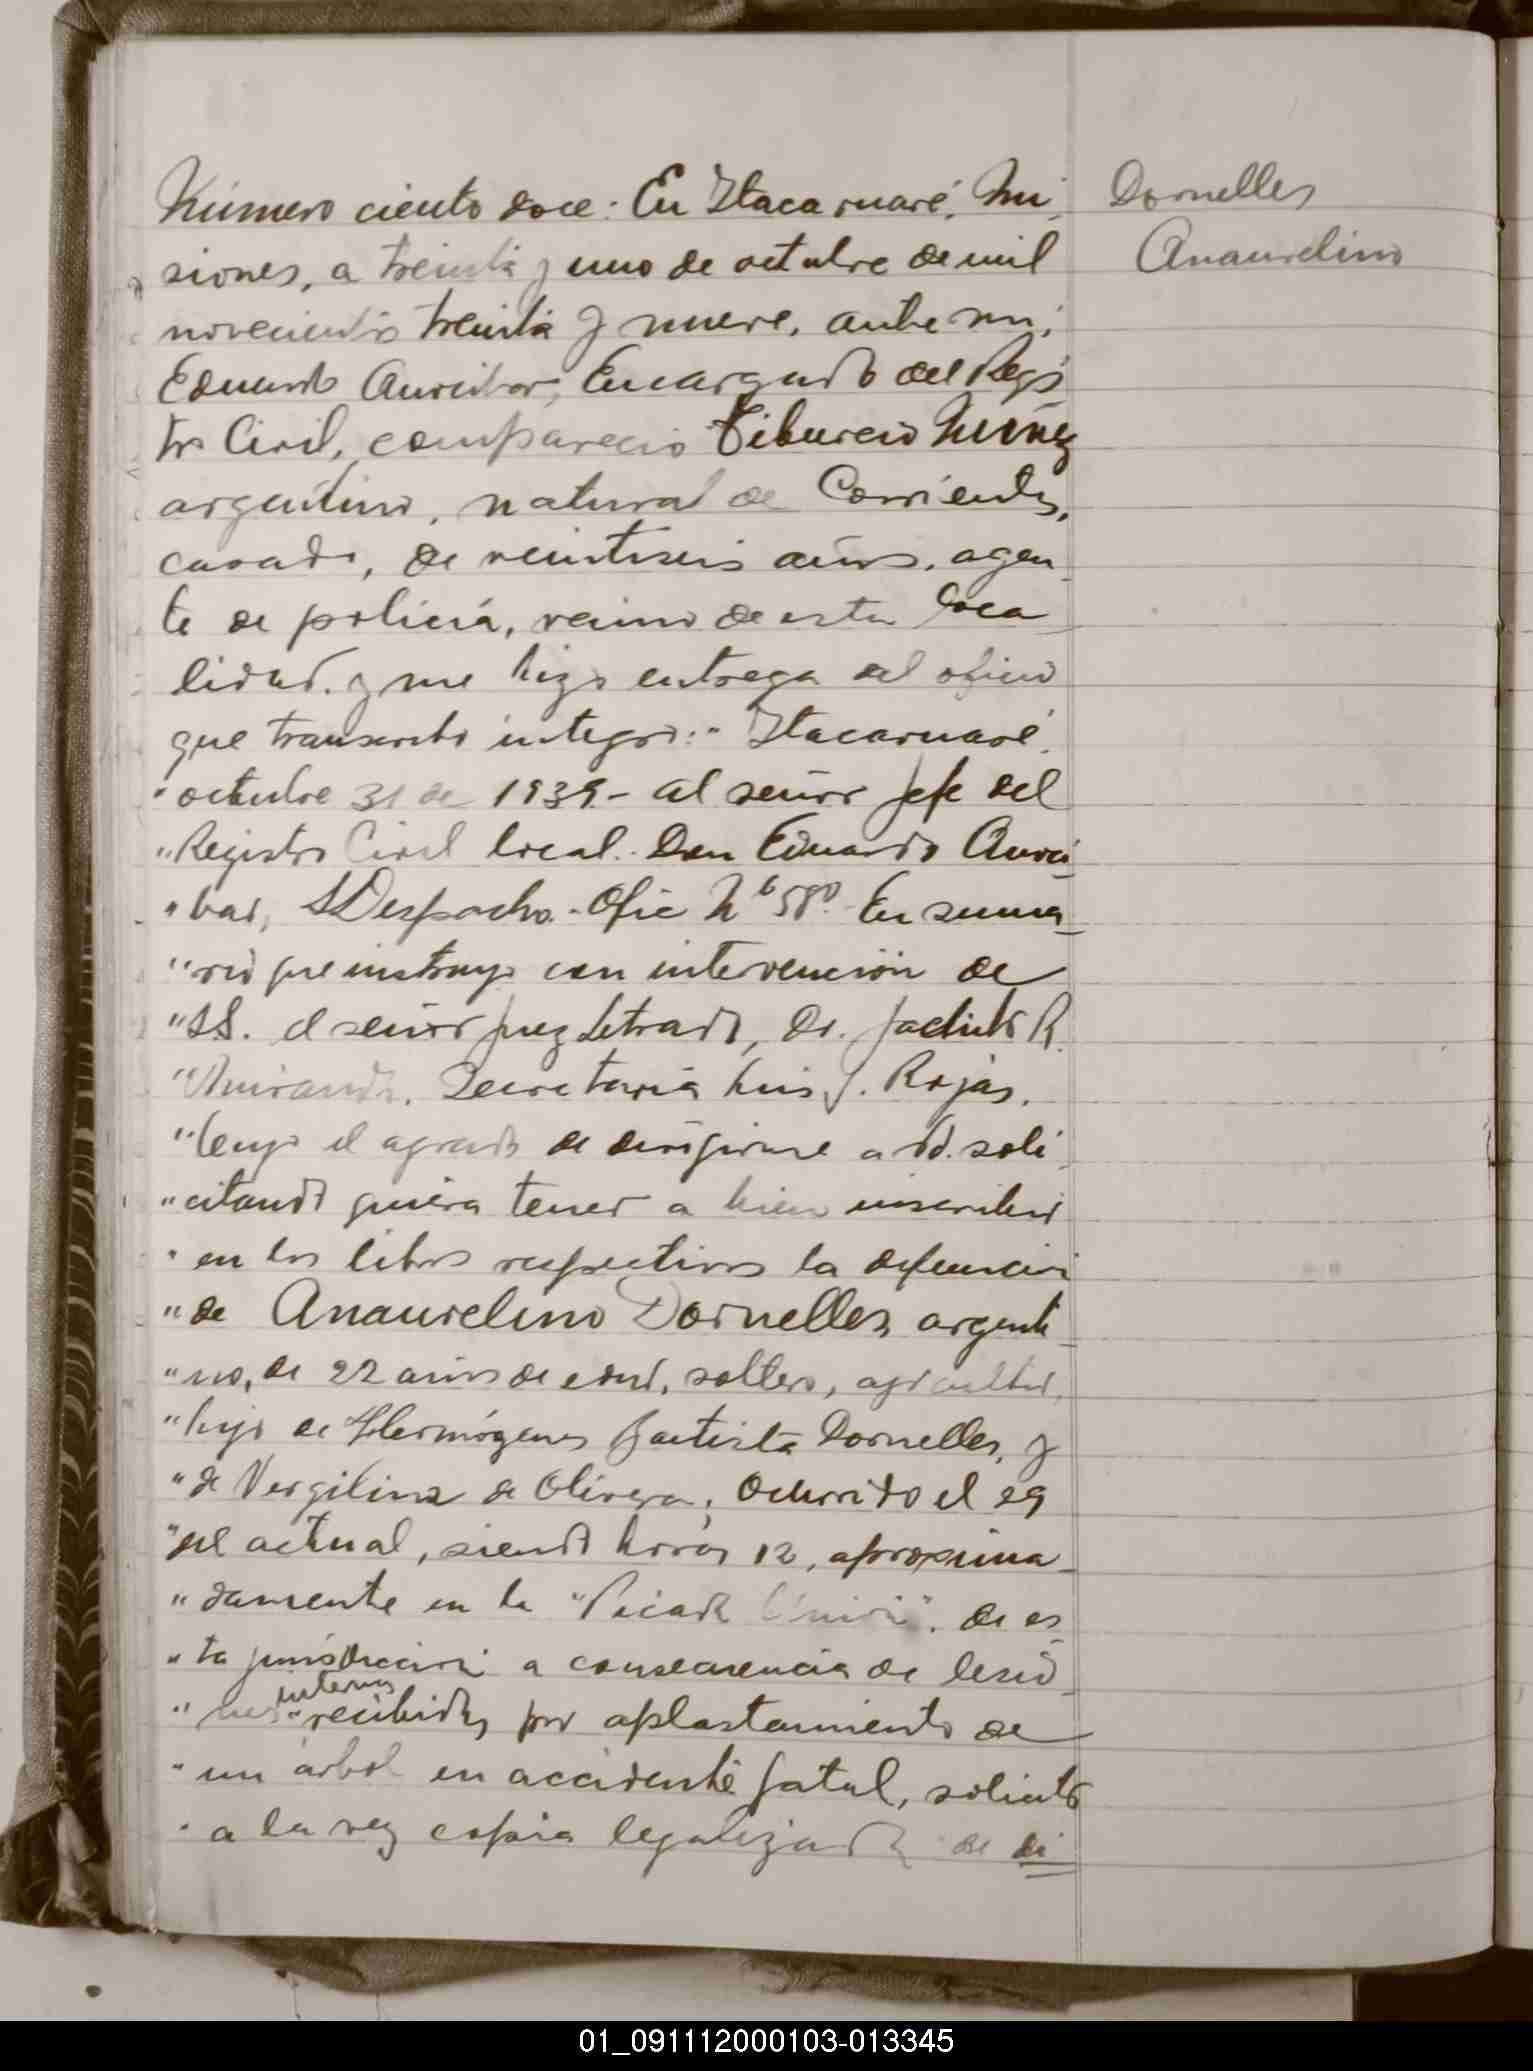 Número ciento doce: En Itacaruaré, Mi
siones, a treinta y uno de octubre de mil
novecientos treinta y nueve, ante mi,
Eduardo Aurcibar, Encargado del Regis
tro Civil, compareció Tiburcio Núñez
argentino, natural de Corrientes,
casado, de veintiseis años, agen
te de policía, vecino de esta loca
lidad. y me hizo entrega del oficio
que transcribo integro: " Itacaruaré.
" octubre 31 de 1939.- al señor Jefe del
" Registro Civil local. Don Eduardo Aurci
" bar, S/Despacho.- Ofic Nº 580. En suma
" rio que instruyo con intervención de
" S.S. el señor Juez Letrado, Dr. Jacinto R.
" Miranda. Secretaria Luis J. Rojas.
" tengo el agrado de dirigirme a Vd. soli
" citando quiera tener a bien inscribir
" en los libros respectivos la defunción
" de Anaurelino Dornelles, argenti
" no, de 22 años de edad, soltero, agricultor,
" hijo de Hermógenes Bautista Dornelles, y
" de Vergilina de Olivera, Ocurrido el 29
" del actual, siendo horas 12, aproxima
" damente en la "Picada Unión". de es
" ta jurisdicción a consecuencia de lesio
" nes internas recibidas por aplastamiento de
" un árbol en accidente fatal, solicito
" a la vez copia legalizada de di
Dornelles
Anaurelino
01_091112000103-013345